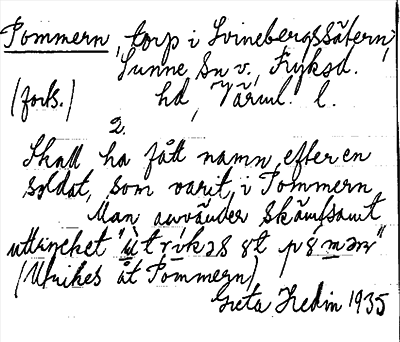 Pommern, torp i Svinebergssätern,
Sunne sn v., Fryksd.
(forts.) hd, Värml. l.
2.
Skall ha fått namn efter en
soldat, som varit i Pommern
Man använder skämtsamt
uttrycket "ùtrikəs åt pǻmərn"
(Utrikes åt Pommern)
Greta Hedin 1935